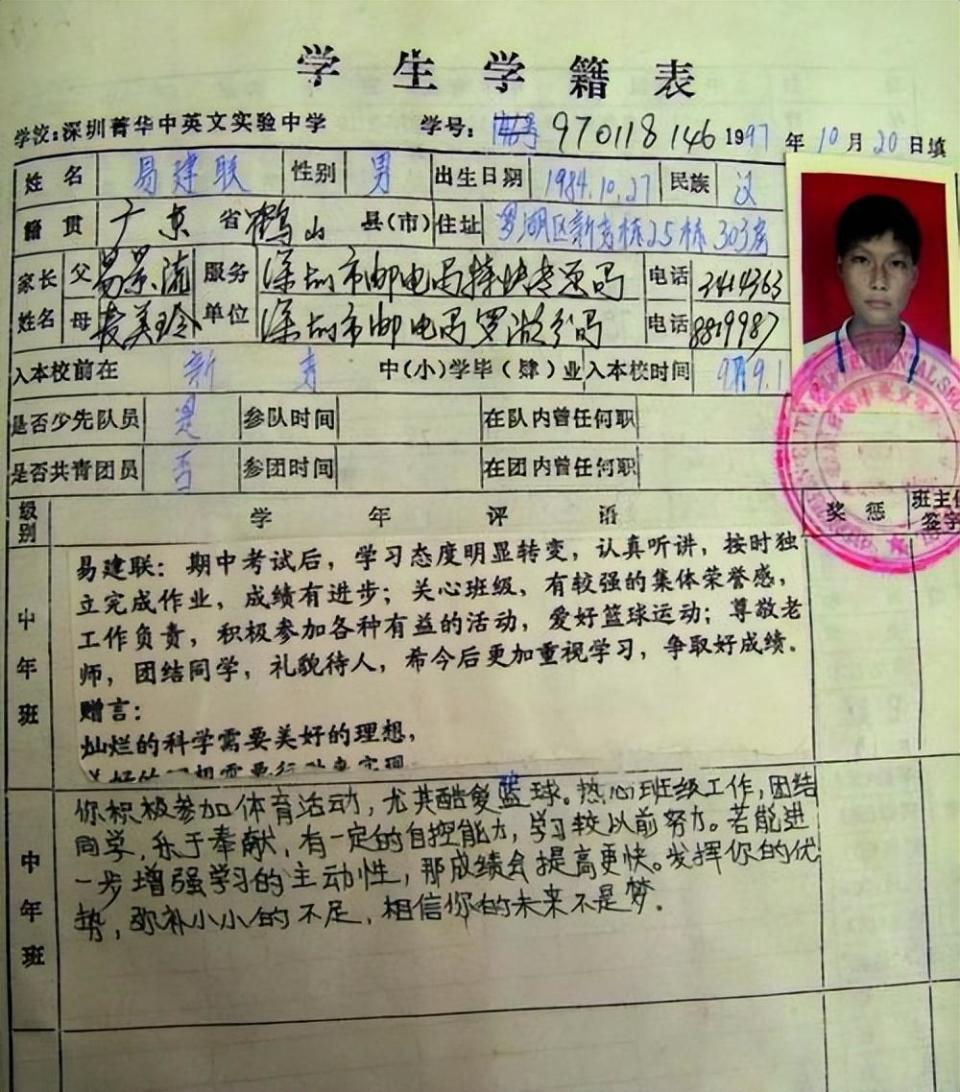 学生学籍表
学校：深圳菁华中英文实验中学 学号：970118146 1997年10月20日填
姓名 易建联 性别 男 出生日期 1984.10.27 民族 汉
籍贯 广东省鹤山县（市）住址 罗湖区新秀栋25栋303房
家长姓名 父 易景流 服务单位 深圳市邮电局 电话 3414363
母 麦美玲 深圳市邮电局罗湖分局 电话 8819987
入本校前在 新秀 中（小）学毕（肄）业 入本校时间 9.1
是否少先队员 是 参队时间 在队内曾任何职
是否共青团员 否 参团时间 在团内曾任何职
级别 学年评语 奖惩 班主任签字
中年班
易建联：期中考试后，学习态度明显转变，认真听讲，按时独
立完成作业，成绩有进步；关心班级，有较强的集体荣誉感，
工作负责，积极参加各种有益的活动，爱好篮球运动；尊敬老
师，团结同学，礼貌待人，希今后更加重视学习，争取好成绩。
赠言：
灿烂的科学需要美好的理想，
中年班
你积极参加体育活动，尤其酷爱篮球。热心班级工作，团结
同学，乐于奉献，有一定的自控能力，学习较以前努力。若能进
一步增强学习的主动性，那成绩会提高更快。发挥你的优
势，弥补小小的不足，相信你的未来不是梦.